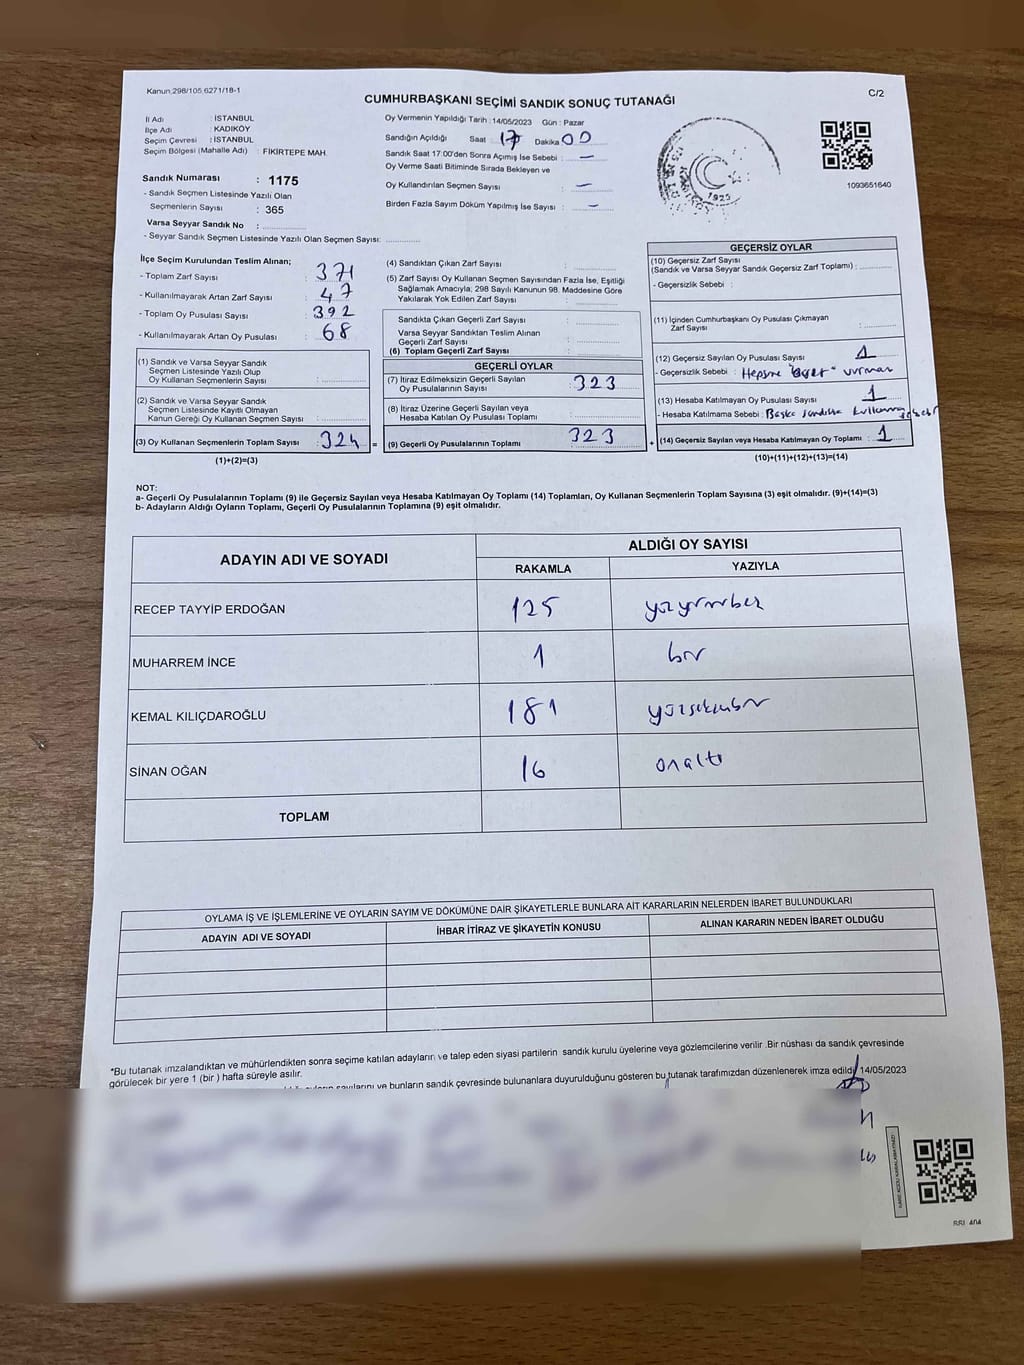 Kanun 298/105,6271/18-1
C/2
CUMHURBAŞKANI SEÇİMİ SANDIK SONUÇ TUTANAĞI
İl Adı : İSTANBUL
İlçe Adı : KADIKÖY
Seçim Çevresi : İSTANBUL
Seçim Bölgesi (Mahalle Adı) : FİKİRTEPE MAH.
Sandık Numarası : 1175
- Sandık Seçmen Listesinde Yazılı Olan
Seçmenlerin Sayısı : 365
Varsa Seyyar Sandık No :
- Seyyar Sandık Seçmen Listesinde Yazılı Olan Seçmen Sayısı:
Oy Vermenin Yapıldığı Tarih : 14/05/2023 Gün : Pazar
Sandığın Açıldığı Saat 17 Dakika 00
Sandık Saat 17:00'den Sonra Açımış İse Sebebi : —
Oy Verme Saati Bitiminde Sırada Bekleyen ve
Oy Kullandırılan Seçmen Sayısı : —
Birden Fazla Sayım Döküm Yapılmış İse Sayısı : —
1925
1093651640
İlçe Seçim Kurulundan Teslim Alınan;
- Toplam Zarf Sayısı : 371
- Kullanılmayarak Artan Zarf Sayısı : 47
- Toplam Oy Pusulası Sayısı : 392
- Kullanılmayarak Artan Oy Pusulası : 68
(1) Sandık ve Varsa Seyyar Sandık
Seçmen Listesinde Yazılı Olup
Oy Kullanan Seçmenlerin Sayısı :
(2) Sandık ve Varsa Seyyar Sandık
Seçmen Listesinde Kayıtlı Olmayan
Kanun Gereği Oy Kullanan Seçmen Sayısı :
(3) Oy Kullanan Seçmenlerin Toplam Sayısı : 324 =
(1)+(2)=(3)
(4) Sandıktan Çıkan Zarf Sayısı :
(5) Zarf Sayısı Oy Kullanan Seçmen Sayısından Fazla İse, Eşitliği
Sağlamak Amacıyla; 298 Sayılı Kanunun 98. Maddesine Göre
Yakılarak Yok Edilen Zarf Sayısı :
Sandıkta Çıkan Geçerli Zarf Sayısı :
Varsa Seyyar Sandıktan Teslim Alınan
Geçerli Zarf Sayısı :
(6) Toplam Geçerli Zarf Sayısı :
GEÇERLİ OYLAR
(7) İtiraz Edilmeksizin Geçerli Sayılan
Oy Pusulalarının Sayısı : 323
(8) İtiraz Üzerine Geçerli Sayılan veya
Hesaba Katılan Oy Pusulası Toplamı :
(9) Geçerli Oy Pusulalarının Toplamı : 323 +
GEÇERSİZ OYLAR
(10) Geçersiz Zarf Sayısı
(Sandık ve Varsa Seyyar Sandık Geçersiz Zarf Toplamı) :
- Geçersizlik Sebebi :
(11) İçinden Cumhurbaşkanı Oy Pusulası Çıkmayan
Zarf Sayısı :
(12) Geçersiz Sayılan Oy Pusulası Sayısı : 1
- Geçersizlik Sebebi : Hepsine "evet" vurman
(13) Hesaba Katılmayan Oy Pusulası Sayısı : 1
- Hesaba Katılmama Sebebi : Başka sandıkta kullanma
(14) Geçersiz Sayılan veya Hesaba Katılmayan Oy Toplamı : 1
(10)+(11)+(12)+(13)=(14)
NOT:
a- Geçerli Oy Pusulalarının Toplamı (9) ile Geçersiz Sayılan veya Hesaba Katılmayan Oy Toplamı (14) Toplamları, Oy Kullanan Seçmenlerin Toplam Sayısına (3) eşit olmalıdır. (9)+(14)=(3)
b- Adayların Aldığı Oyların Toplamı, Geçerli Oy Pusulalarının Toplamına (9) eşit olmalıdır.
ADAYIN ADI VE SOYADI
ALDIĞI OY SAYISI
RAKAMLA YAZIYLA
RECEP TAYYİP ERDOĞAN 125 yüzyirmibeş
MUHARREM İNCE 1 bir
KEMAL KILIÇDAROĞLU 181 yüzseksenbir
SİNAN OĞAN 16 onaltı
TOPLAM
OYLAMA İŞ VE İŞLEMLERİNE VE OYLARIN SAYIM VE DÖKÜMÜNE DAİR ŞİKAYETLERLE BUNLARA AİT KARARLARIN NELERDEN İBARET BULUNDUKLARI
ADAYIN ADI VE SOYADI İHBAR İTİRAZ VE ŞİKAYETİN KONUSU ALINAN KARARIN NEDEN İBARET OLDUĞU
*Bu tutanak imzalandıktan ve mühürlendikten sonra seçime katılan adayların ve talep eden siyasi partilerin sandık kurulu üyelerine veya gözlemcilerine verilir .Bir nüshası da sandık çevresinde
görülecek bir yere 1 (bir ) hafta süreyle asılır.
sayılarını ve bunların sandık çevresinde bulunanlara duyurulduğunu gösteren bu tutanak tarafımızdan düzenlenerek imza edildi 14/05/2023